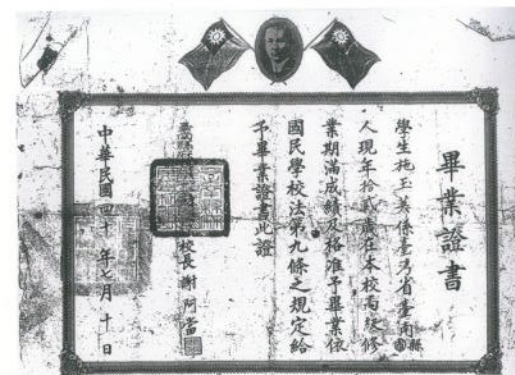 畢業證書
學生施玉英係臺灣省臺南縣
人現年拾貳歲在本校高級修
業期滿成績及格准予畢業依
國民學校法第九條之規定給
予畢業證書此證
校長謝阿當
中華民國四十年七月十日